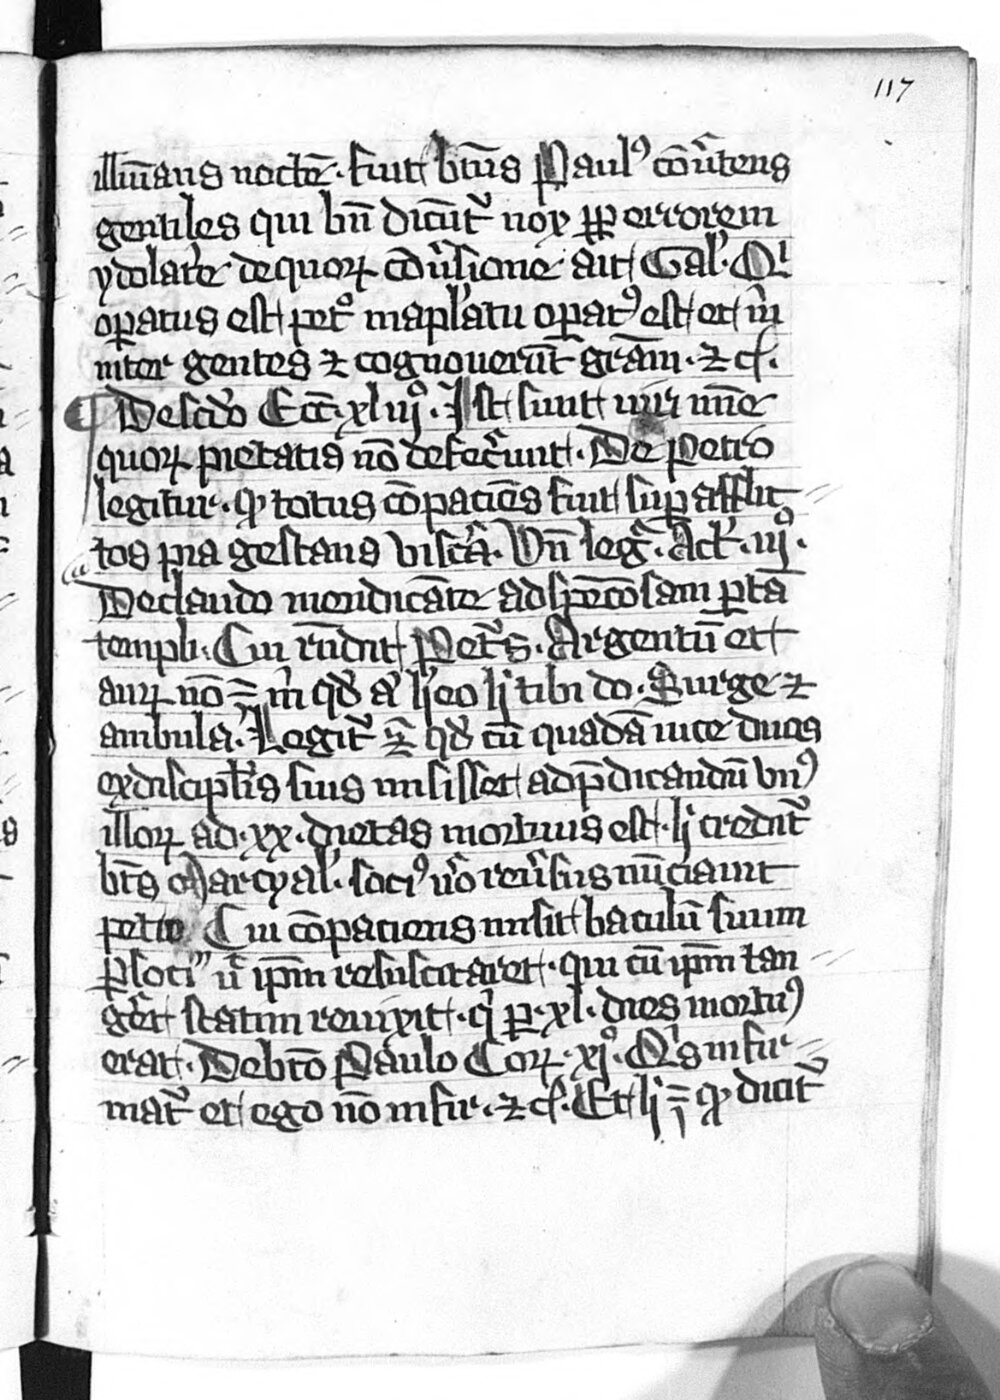 117
illuı̄ans noctē · fuit btūs Paulꝰ cōu̓tens
gentiles qui bn̄ dicūt᷑ nox ꝓp errorem
ydolatͥe de quoꝝ cōu̓sione ait Gal̓ · Qͥ
opatus est petͦ in apl̓atu opatꝰ est et m̓
inter gentes ⁊ cognouerūt gr̄am · ⁊ cͭ ·
De scd̓o Ecc̄ · xliiijͦ · Isti sunt uiri mīe
quoꝝ pietatis nō defec̓unt · De petro
legitur · ꝙ totus cōpaciēs fuit suꝑ afflic
tos pia gestans visc̓a · Vn̄ leg᷑ · Act̓ · iijͦ ·
De claudo mendicāte ad specōsam ꝑtā
templi · Cui rn̄dit Pet᷑s · Argentū et
auꝝ nō ÷ m̓ qd̓ aͥ hēo h̓ tibi do · Surge ⁊
ambula · Legit᷑ ⁊̄ qd̓ cū quadā uice duos
ex discipl̓is suis misisset ad p̄dicandū vnꝰ
illoꝝ ad · xx · dietas mortuus est · h̓ credit᷑
bt̄s Marcyal̓ · sociꝰ u̓o reu̓sus nūciauit
petro Cui cōpaciens misit baculū suum
ꝑ soci͞ u᷑ ipm̄ resuscitaret · qui cū ipm̄ tan
g̓et statim reuixit · qͥ ꝑ · xl · dies mortuꝰ
erat · De bt̄o Paulo Coꝝ · xjͦ · Qͥs infir
mat᷑ et ego nō infir · ⁊ cͭ · Et h̓ ÷ ꝙ dicit᷑